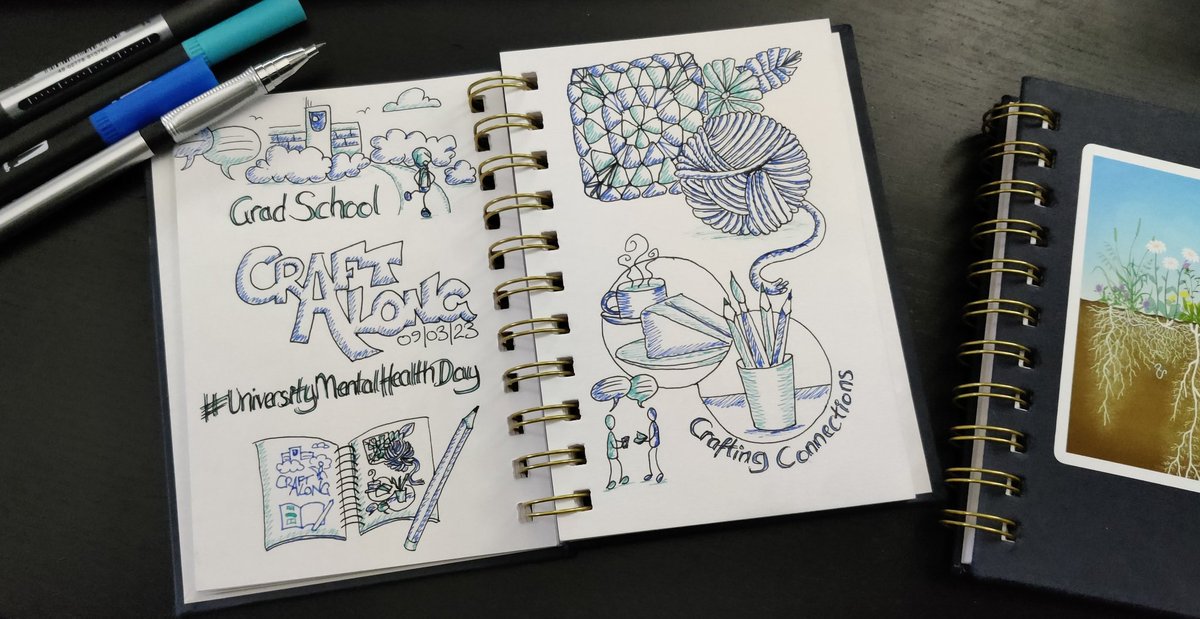 Grad School
CRAFT
ALONG
09/03/23
#UniversityMentalHealthDay
CRAFT
ALONG
Crafting Connections